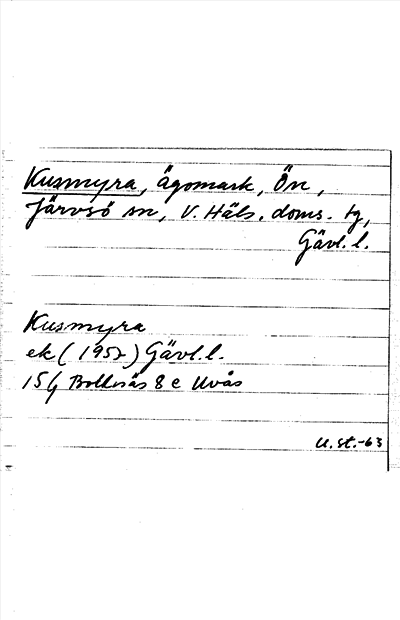 Kusmyra, ägomark, Ön,
Järvsö sn, V. Häls. doms. tg,
Gävl. l.
Kusmyra
ek (1957) Gävl. l.
15G Bollnäs 8 c Uvås
U. st.-63